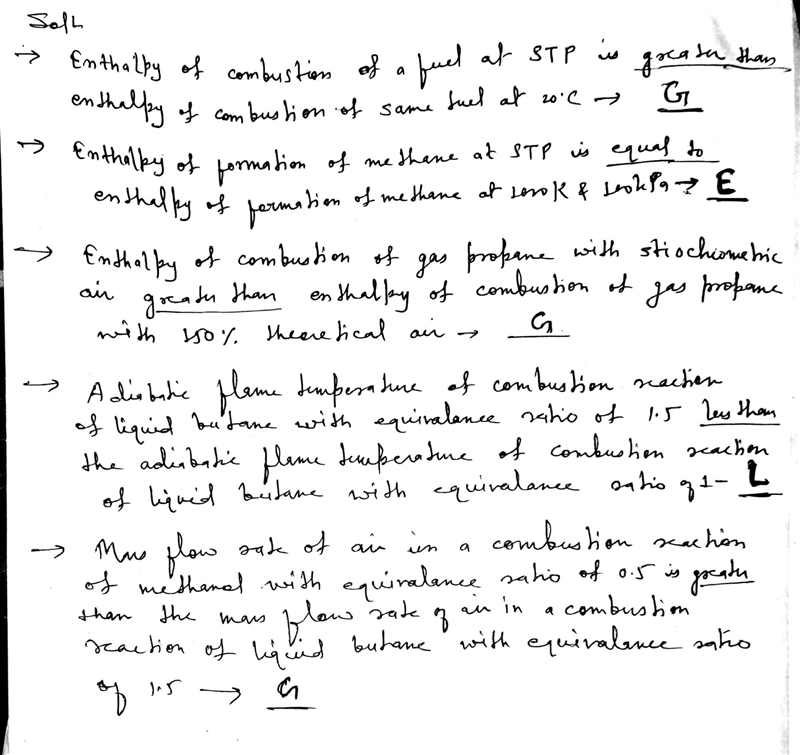 Soln
→ Enthalpy of combustion of a fuel at STP is greater than
enthalpy of combustion of same fuel at 20°C → G
→ Enthalpy of formation of methane at STP is equal to
enthalpy of formation of methane at 1000K & 100kPa → E
→ Enthalpy of combustion of gas propane with stiochiometric
air greater than enthalpy of combustion of gas propane
with 150% theoretical air → G
→ Adiabatic flame temperature of combustion reaction
of liquid butane with equivalence ratio of 1.5 less than
the adiabatic flame temperature of combustion reaction
of liquid butane with equivalance ratio of 1 - L
→ Mass flow rate of air in a combustion reaction
of methanol with equivalance ratio of 0.5 is greater
than the mass flow rate of air in a combustion
reaction of liquid butane with equivalance ratio
of 1.5 → G